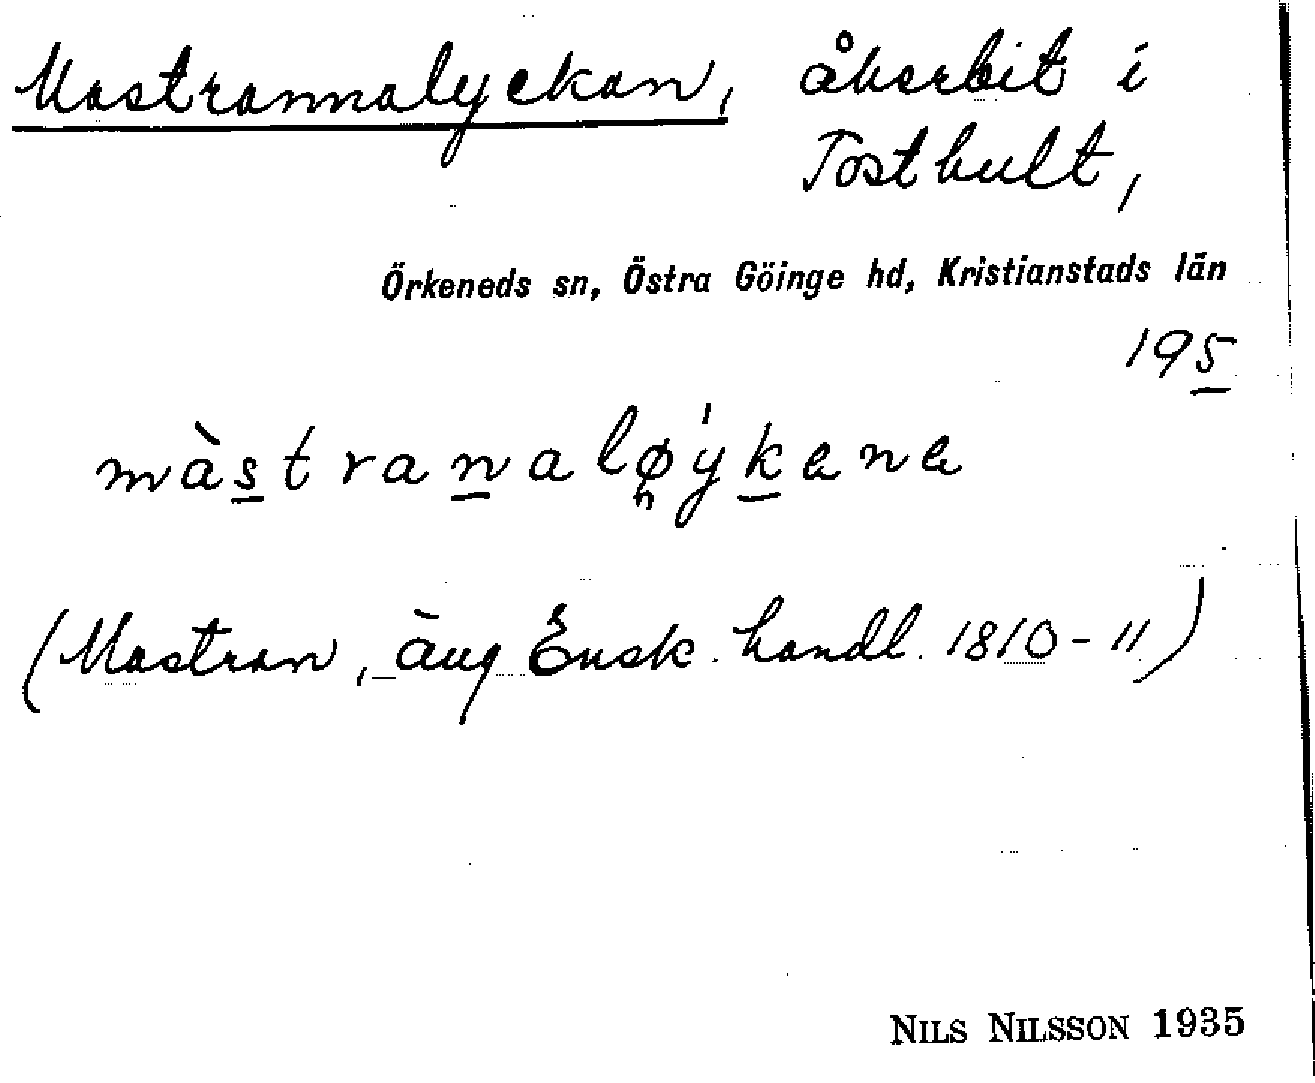 Mastrannalyckan, åkerbit i
Tosthult,
Örkeneds sn, Östra Göinge hd, Kristianstads län
195
màstranaløýkana
(Mastran, äng Ensk. handl. 1810-11)
NILS NILSSON 1935